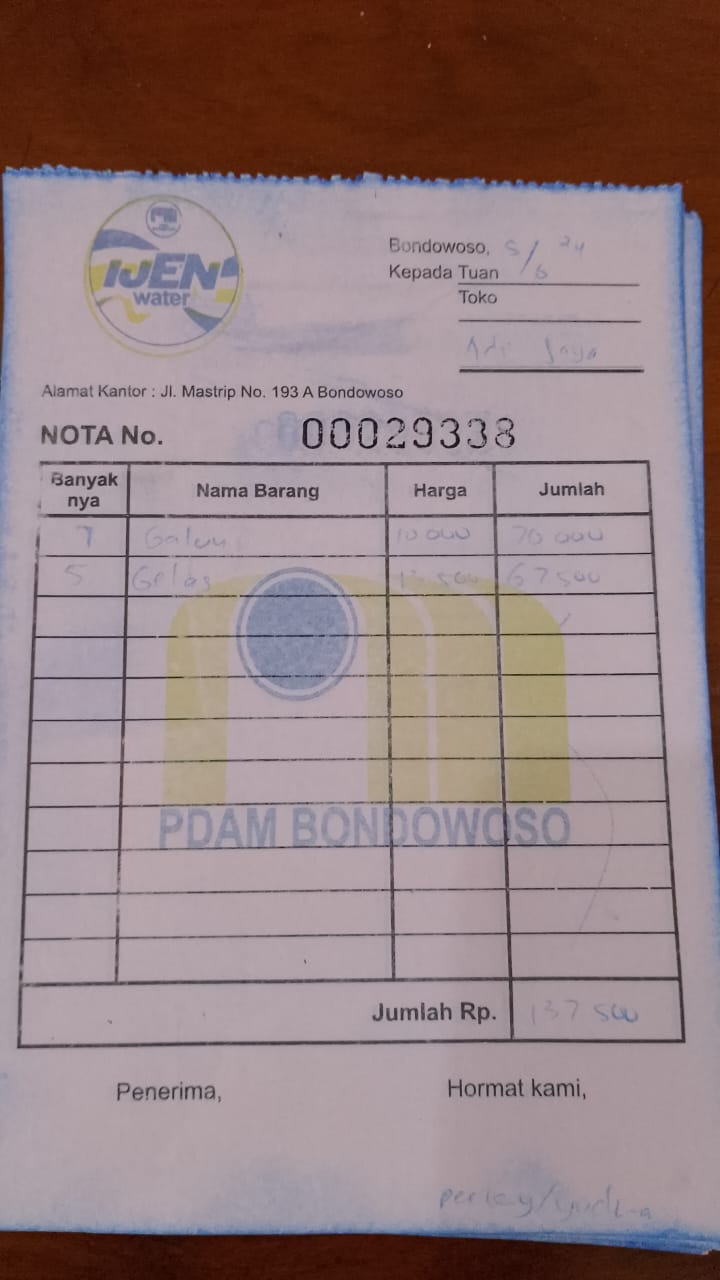 IJEN
water
Bondowoso, 5/6 24
Kepada Tuan
Toko
Adi Jaya
Alamat Kantor : Jl. Mastrip No. 193 A Bondowoso
NOTA No. 00029338
Banyak nya Nama Barang Harga Jumlah
7 Galon 10 000 70 000
5 Gelas 13 500 67 500
PDAM BONDOWOSO
Jumlah Rp. 137 500
Penerima, Hormat kami,